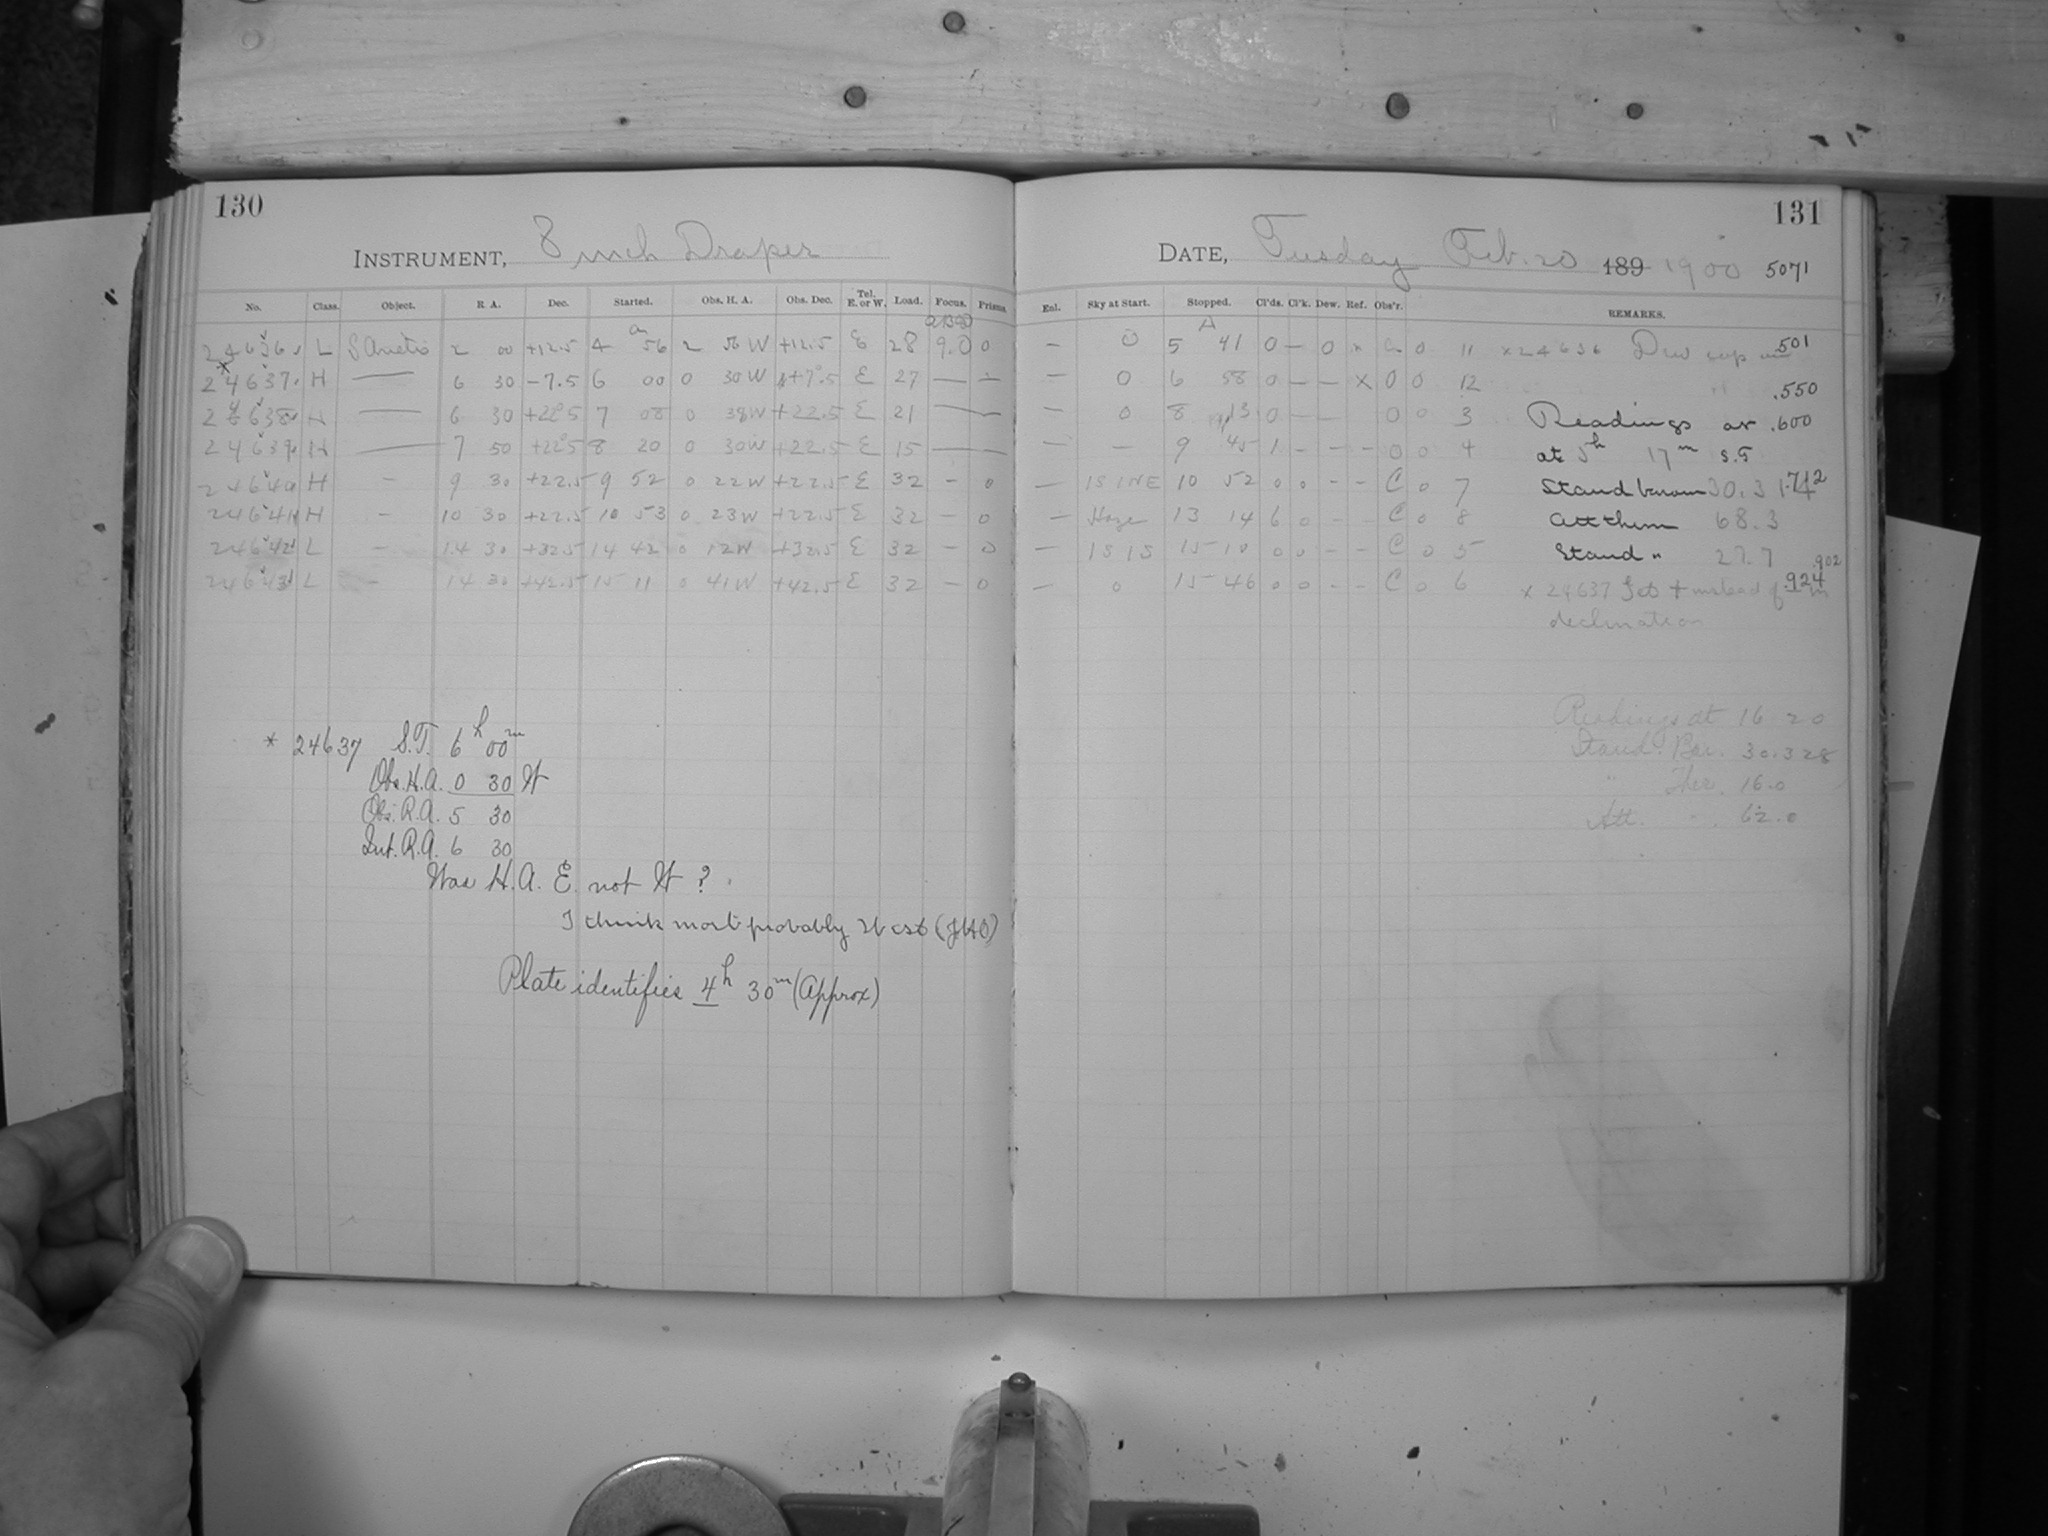 130
INSTRUMENT, 8 inch Draper
No. Class. Object. R. A. Dec. Started. Obs. H. A. Obs. Dec. Tel. E. or W. Load. Focus. Prisms
24636 L S Arietis 2 00 +12.5 4 56 2 56 W +12.5 E 28 9.0 0
*
24637 H — 6 30 -7.5 6 00 0 30 W +7.5 E 27 — —
24638 H — 6 30 +22.5 7 08 0 38 W +22.5 E 21 — —
24639 H — 7 50 +22.5 8 20 0 30 W +22.5 E 15 — —
24640 H — 9 30 +22.5 9 52 0 22 W +22.5 E 32 — 0
24641 H — 10 30 +22.5 10 53 0 23 W +22.5 E 32 — 0
24642 L — 14 30 +32.5 14 42 0 12 W +32.5 E 32 — 0
24643 L — 14 30 +42.5 15 11 0 41 W +42.5 E 32 — 0
* 24637 S.T. 6h 00m
Obs. H.A. 0 30 W
Obs. R.A. 5 30
Int. R.A. 6 30
Was H.A. E. not W?
I think most probably West
Plate identifies 4h 30m (Approx)
131
DATE, Tuesday Feb. 20 189 1900 5071
Enl. Sky at Start. Stopped. Cl'ds. Cl'k. Dew. Ref. Obs'r. REMARKS.
— 0 5 41 0 — 0 x 0 11 x 24636 Dew cap .501
— 0 6 58 0 — — x 0 0 12 .550
— 0 8 13 0 — — 0 0 3 Readings at .600
— — 9 45 1 — — — 0 0 4 at 5h 17m S.T
— 1S 1NE 10 52 0 0 — — C 0 7 Stand barom 30.31 .742
— Haze 13 14 6 0 — — C 0 8 Att therm 68.3
— 1S 1S 15 10 0 0 — — C 0 5 Stand " 27.7 .902
— 0 15 46 0 0 — — C 0 6 x 24637 Set + instead of — in .924
declination
Readings at 16 20
Stand. Bar. 30.328
" Ther. 16.0
Att. " 62.0